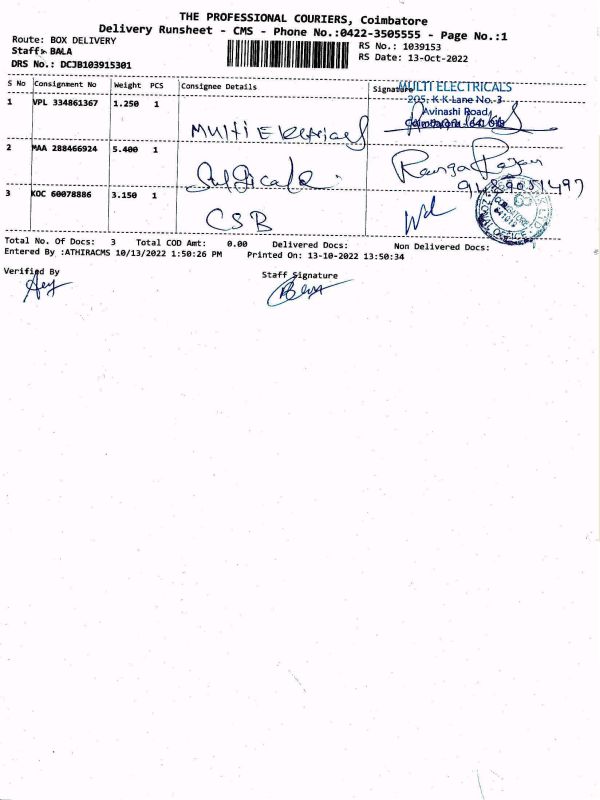 THE PROFESSIONAL COURIERS, Coimbatore
Delivery Runsheet - CMS - Phone No.:0422-3505555 - Page No.:1
Route: BOX DELIVERY
RS No.: 1039153
Staff: BALA
RS Date: 13-Oct-2022
DRS No.: DCJB103915301
S No Consignment No Weight PCS Consignee Details Signature
MULTI ELECTRICALS
205, K K Lane No.-3
Avinashi Road,
1 VPL 334861367 1.250 1 Multi Electricals
2 MAA 288466924 5.400 1 Surgicals Ranga Rajan
9489051497
3 KOC 60078886 3.150 1 CSB
Total No. Of Docs: 3 Total COD Amt: 0.00 Delivered Docs: Non Delivered Docs:
Entered By :ATHIRACMS 10/13/2022 1:50:26 PM Printed On: 13-10-2022 13:50:34
Verified By
Staff Signature